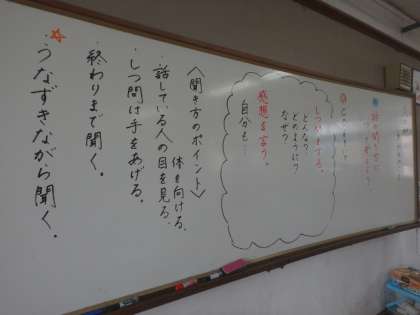 しつもんする。
どんな？
どのように？
なぜ？
感想を言う。
自分も…
〈聞き方のポイント〉
体を向ける。
・話している人の目を見る。
・しつ問は手をあげる。
・終わりまで聞く。
・うなずきながら聞く。